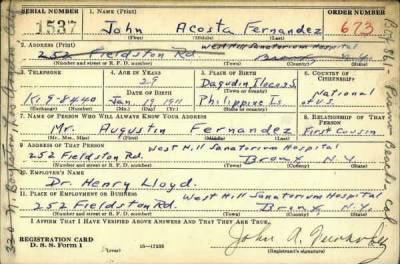 SERIAL NUMBER
1. NAME (Print)
ORDER NUMBER
1537
John Acosta Fernandez
673
(First) (Middle) (Last)
2. ADDRESS (Print)
West Hill Sanatorium Hospital
252 Fieldston Rd. Bronx N.Y.
(Number and street or R. F. D. number) (Town) (County) (State)
3. TELEPHONE
4. AGE IN YEARS
5. PLACE OF BIRTH
6. COUNTRY OF CITIZENSHIP
29
DATE OF BIRTH
Ki. 9-8440
Jan. 19 1911
Philippine Is.
National of U.S.
(Exchange) (Number)
(Mo.) (Day) (Yr.)
(Town) (County)
(State or country)
7. NAME OF PERSON WHO WILL ALWAYS KNOW YOUR ADDRESS
8. RELATIONSHIP OF THAT PERSON
Mr. Augustin Fernandez
First Cousin
(Mr., Mrs., Miss) (First) (Middle) (Last)
9. ADDRESS OF THAT PERSON
West Hill Sanatorium Hospital
252 Fieldston Rd. Bronx N.Y.
(Number and street or R. F. D. number) (Town) (County) (State)
10. EMPLOYER'S NAME
Dr. Henry Lloyd.
11. PLACE OF EMPLOYMENT OR BUSINESS
West Hill Sanatorium Hospital
252 Fieldston Rd. Bronx N.Y.
(Number and street or R. F. D. number) (Town) (County) (State)
I AFFIRM THAT I HAVE VERIFIED ABOVE ANSWERS AND THAT THEY ARE TRUE.
REGISTRATION CARD
D. S. S. Form 1
16—17105
John A. Fernandez
(Registrant's signature)